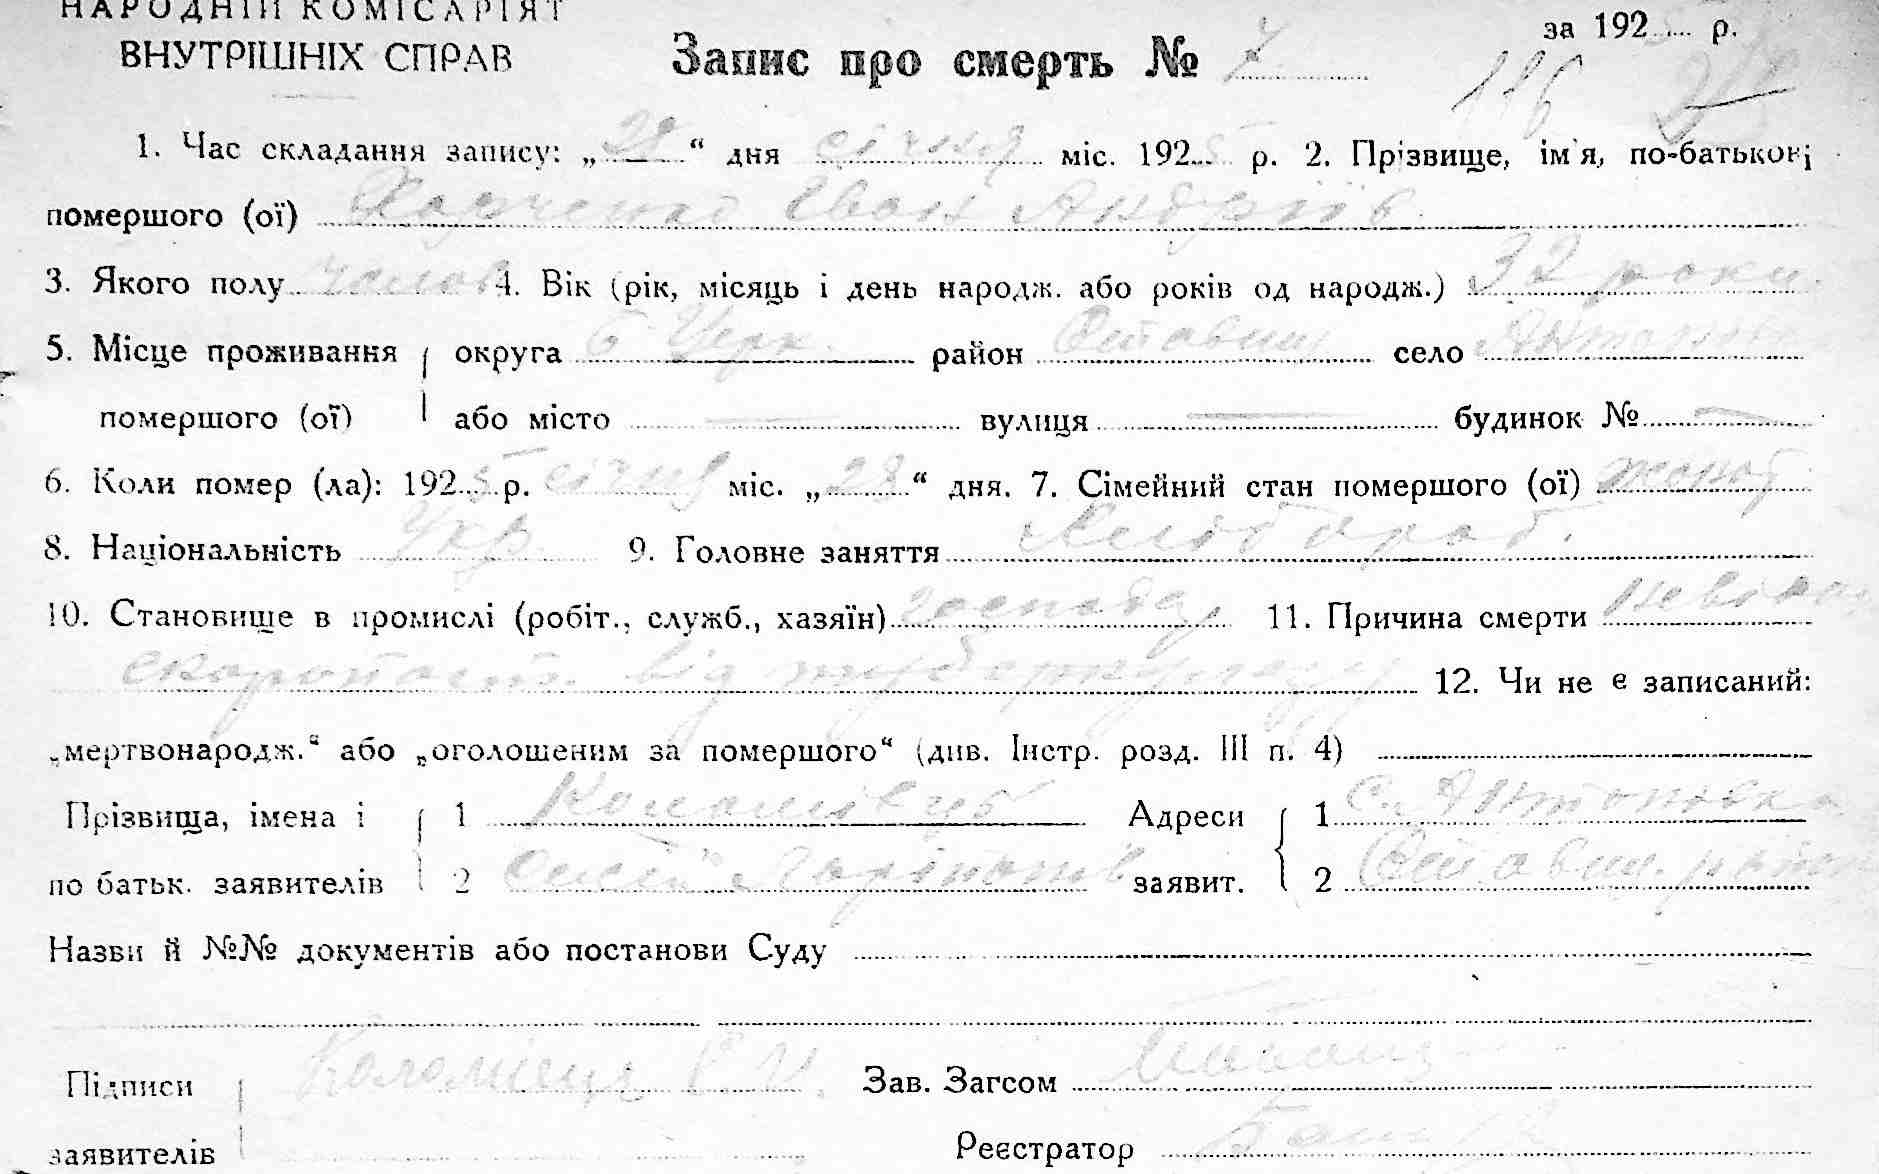 НАРОДНІЙ КОМІСАРІЯТ
ВНУТРІШНІХ СПРАВ
Запис про смерть № 7
за 192 р.
116
1. Час складання запису: „28“ дня січня міс. 1925 р. 2. Прізвище, ім'я, по-батькові
помершого (ої) Харченко Іван Андріїв
3. Якого полу чолов 4. Вік (рік, місяць і день народж. або років од народж.) 32 роки
5. Місце проживання округа Б Церк. район Ставищ село Антонівка
помершого (ої) або місто вулиця будинок №
6. Коли помер (ла): 1925 р. січня міс. „28“ дня. 7. Сімейний стан помершого (ої) жонат
8. Національність Укр 9. Головне заняття Хлібороб.
10. Становище в промислі (робіт., служб., хазяїн) господар 11. Причина смерти
скоропост. від туберкульозу 12. Чи не є записаний:
„мертвонародж.“ або „оголошеним за помершого“ (див. Інстр. розд. III п. 4)
Прізвища, імена і 1 Адреси 1 С. Антоновка
по батьк. заявителів 2 заявит. 2 Ставищ. район
Назви й №№ документів або постанови Суду
Підписи Коломієць Зав. Загсом
заявителів Реєстратор